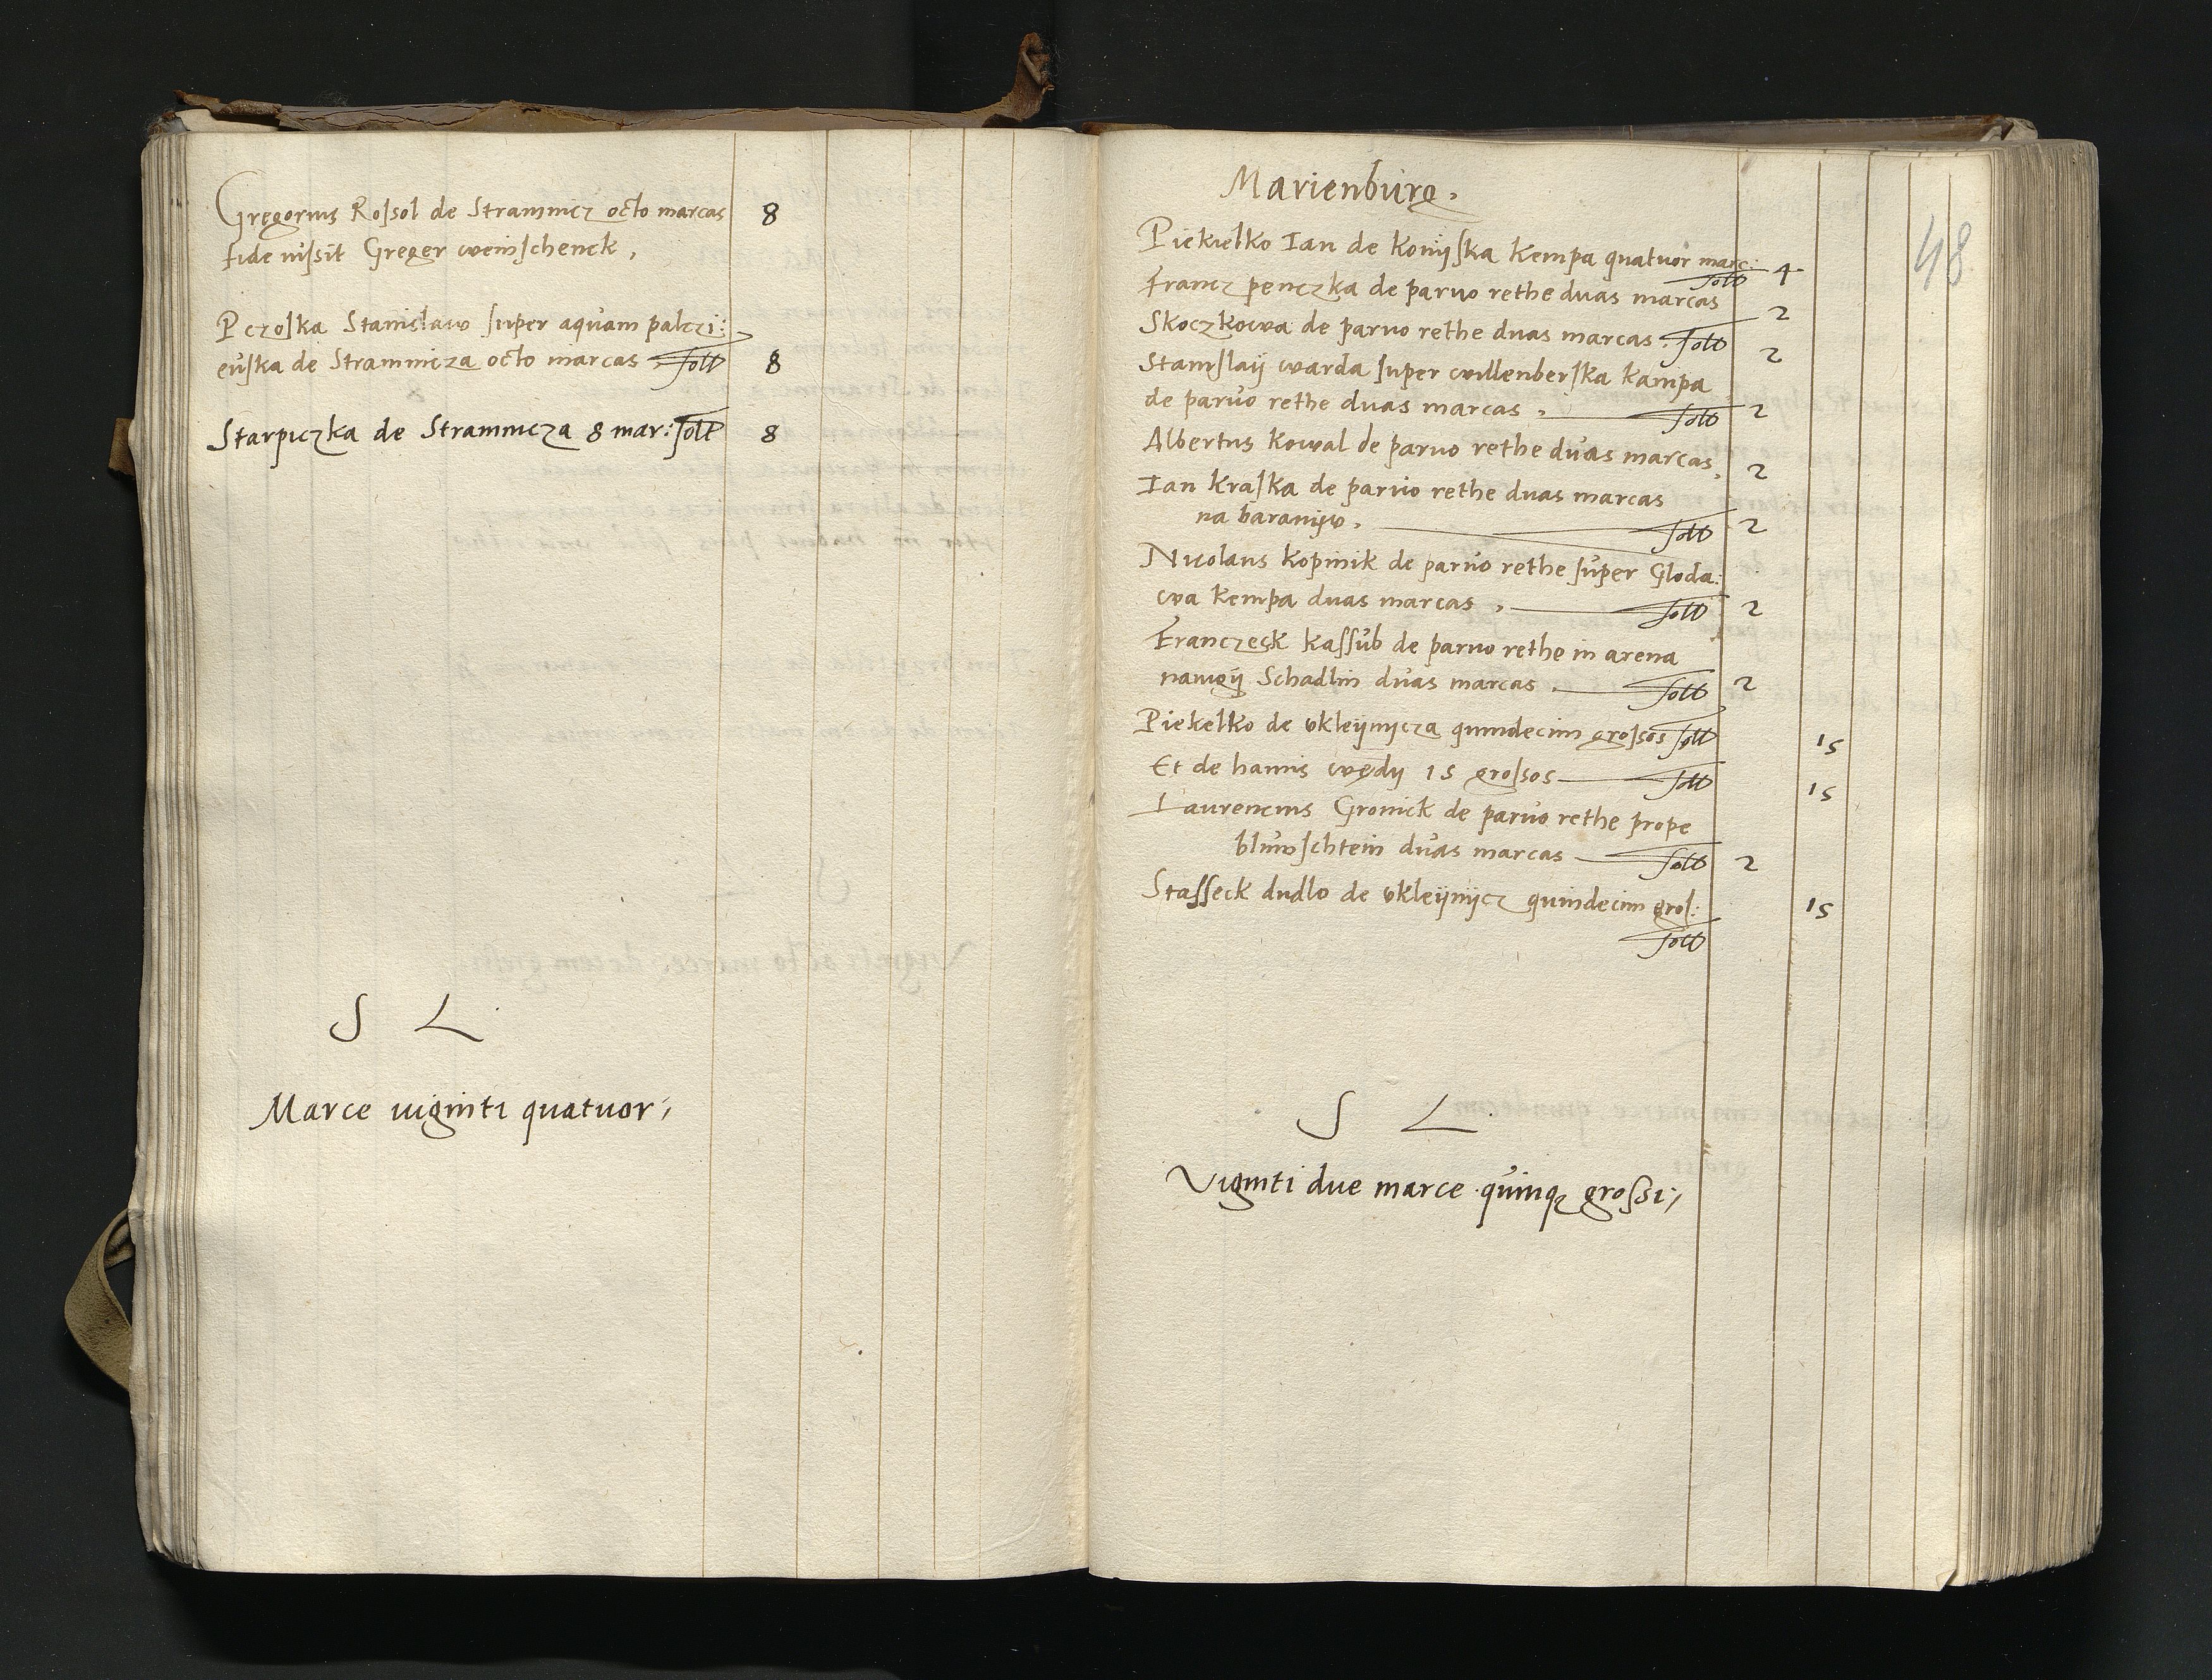 Gregorius Rossol de Stramnicz octo marcas 8
fide iussit Greger weinschenck,
Pczoska Stanislaw super aquam palczi:
euska de Stramnicza octo marcas solt 8
Starpiczka de Stramnicza 8 mar: solt 8
S L
Marce viginti quatuor;
Marienburg.
48
Piekielko Ian de konijska kempa quatuor marc:
solt 4
Francz penczka de paruo rethe duas marcas 2
Skoczkowa de paruo rethe duas marcas. solt 2
Stanislaij warda super willenberska kampa
de paruo rethe duas marcas, solt 2
Albertus kowal de paruo rethe duas marcas, 2
Ian kraska de paruo rethe duas marcas
na baranijw. solt 2
Nicolaus kopinik de paruo rethe super Gloda:
wa kempa duas marcas, solt 2
Franczesk kassub de paruo rethe in arena
nawgij Schadlin duas marcas. solt 2
Piekelko de vkleijnijcza quindecim grossos solt 15
Et de hamis wędij 15 grossos solt 15
Laurencius Gronick de paruo rethe prope
bluwschtein duas marcas solt 2
Stasseck dudlo de vkleijnijcz quindecim gros: 15
solt
S L
Viginti due marce quinqz grossi;